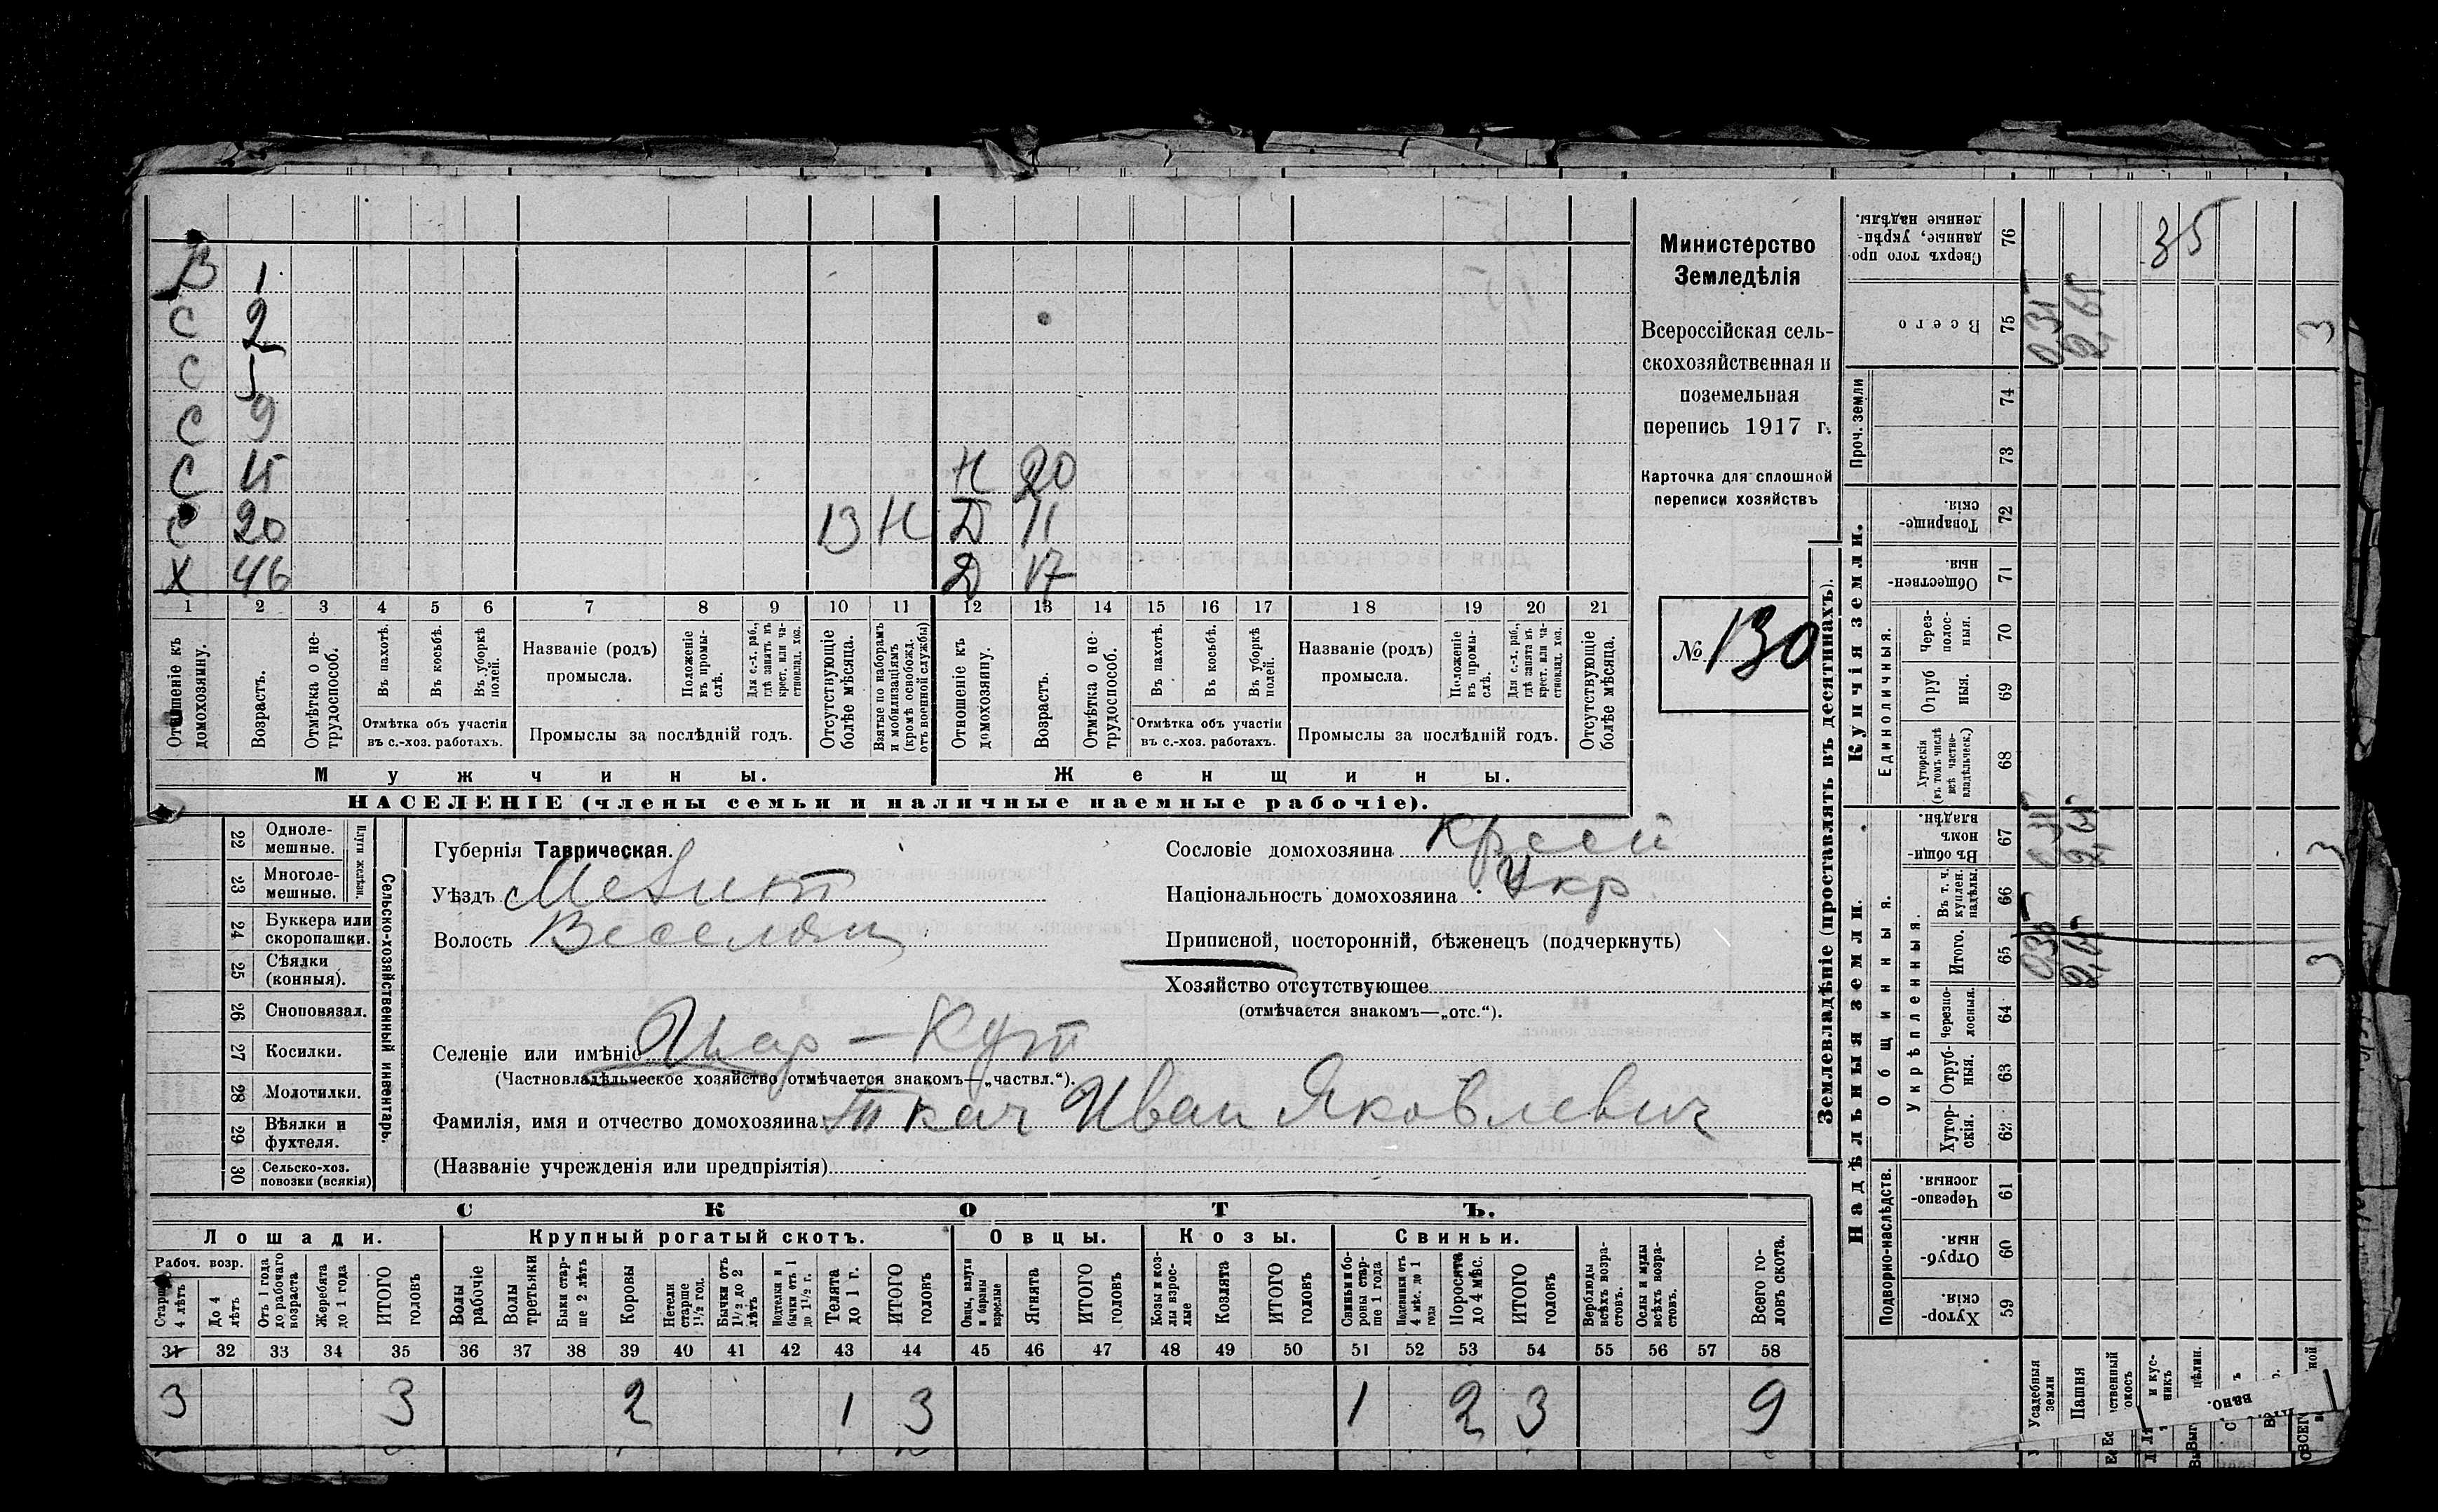 В 1
С 2
С 5
С 9
С 15 Н 20
С 20 В Н Д 11
Х 46 Д 17
1 2 3 4 5 6 7 8 9 10 11 12 13 14 15 16 17 18 19 20 21
Отношеніе къ домохозяину.
Возрастъ.
Отмѣтка о нетрудоспособ.
Въ пахотѣ.
Въ косьбѣ.
Въ уборкѣ полей.
Отмѣтка объ участіи въ с.-хоз. работахъ.
Названіе (родъ) промысла.
Положеніе въ промыслѣ.
Для с.-х. раб., гдѣ занятъ въ крест. или частновлад. хоз.
Промыслы за послѣдній годъ.
Отсутствующіе болѣе мѣсяца.
Взятые по наборамъ и мобилизаціямъ (кромѣ освобожд. отъ военной службы)
Отношеніе къ домохозяину.
Возрастъ.
Отмѣтка о нетрудоспособ.
Въ пахотѣ.
Въ косьбѣ.
Въ уборкѣ полей.
Отмѣтка объ участіи въ с.-хоз. работахъ.
Названіе (родъ) промысла.
Положеніе въ промыслѣ.
Для с.-х. раб., гдѣ занята въ крест. или частновлад. хоз.
Промыслы за послѣдній годъ.
Отсутствующіе болѣе мѣсяца.
Мужчины. Женщины.
НАСЕЛЕНІЕ (члены семьи и наличные наемные рабочіе).
Министерство
Земледѣлія
Всероссійская сель-
скохозяйственная и
поземельная
перепись 1917 г.
Карточка для сплошной
переписи хозяйствъ
№ 130
22 Однолемешные.
23 Многолемешные.
Плуги желѣзн.
24 Буккера или скоропашки.
25 Сѣялки (конныя).
26 Сноповязал.
27 Косилки.
28 Молотилки.
29 Вѣялки и фухтеля.
30 Сельско-хоз. повозки (всякія)
Сельско-хозяйственный инвентарь.
Губернія Таврическая.
Уѣздъ Мелит
Волость Веселян
Селеніе или имѣніе Шар-Кут
(Частновладѣльческое хозяйство отмѣчается знакомъ—„частвл.“).
Фамилія, имя и отчество домохозяина Ткач Иван Яковлевич
(Названіе учрежденія или предпріятія)
Сословіе домохозяина
Національность домохозяина Укр.
Приписной, посторонній, бѣженецъ (подчеркнуть)
Хозяйство отсутствующее
(отмѣчается знакомъ—„отс.“).
СКОТЪ.
Лошади. Крупный рогатый скотъ. Овцы. Козы. Свиньи.
Рабоч. возр.
Старше 4 лѣтъ
До 4 лѣтъ
Отъ 1 года до рабочаго возраста
Жеребята до 1 года
ИТОГО головъ
Волы рабочіе
Волы третьяки
Быки старше 2 лѣтъ
Коровы
Нетели старше 1½ год.
Бычки отъ 1½ до 2 лѣтъ
Подтелки и бычки отъ 1 до 1½ г.
Телята до 1 г.
ИТОГО головъ
Овцы, валухи и бараны взрослые
Ягнята
ИТОГО головъ
Козы и козлы взрослые
Козлята
ИТОГО головъ
Свиньи и боровы старше 1 года
Подсвинки отъ 4 мѣс. до 1 года
Поросята до 4 мѣс.
ИТОГО головъ
Верблюды всѣхъ возрастовъ.
Ослы и мулы всѣхъ возрастовъ.
Всего головъ скота.
31 32 33 34 35 36 37 38 39 40 41 42 43 44 45 46 47 48 49 50 51 52 53 54 55 56 57 58
3 3 2 1 3 1 2 3 9
Землевладѣніе (проставлять въ десятинахъ).
Надѣльныя земли. Купчія земли. Проч. земли
Подворно-наслѣдств. Общинныя. Укрѣпленныя. Единоличныя.
Хуторскія 59
Отрубныя. 60
Черезполосныя. 61
Хуторскія. 62
Отрубныя. 63
Черезполосныя. 64
Итого. 65
Въ т. ч. куплен. надѣлы. 66
Въ общинномъ владѣн. 67
Хуторскія (въ томъ числѣ всѣ частновладѣльческ.) 68
Отрубныя. 69
Черезполосныя. 70
Общественныя. 71
Товарищескія. 72
73
74
Всего 75
Сверхъ того проданные, укрѣпленные надѣлы. 76
Усадебныя земли 0,35 0,35 0,35
Пашня 2,65 2,65 2,65
35
3 3 3